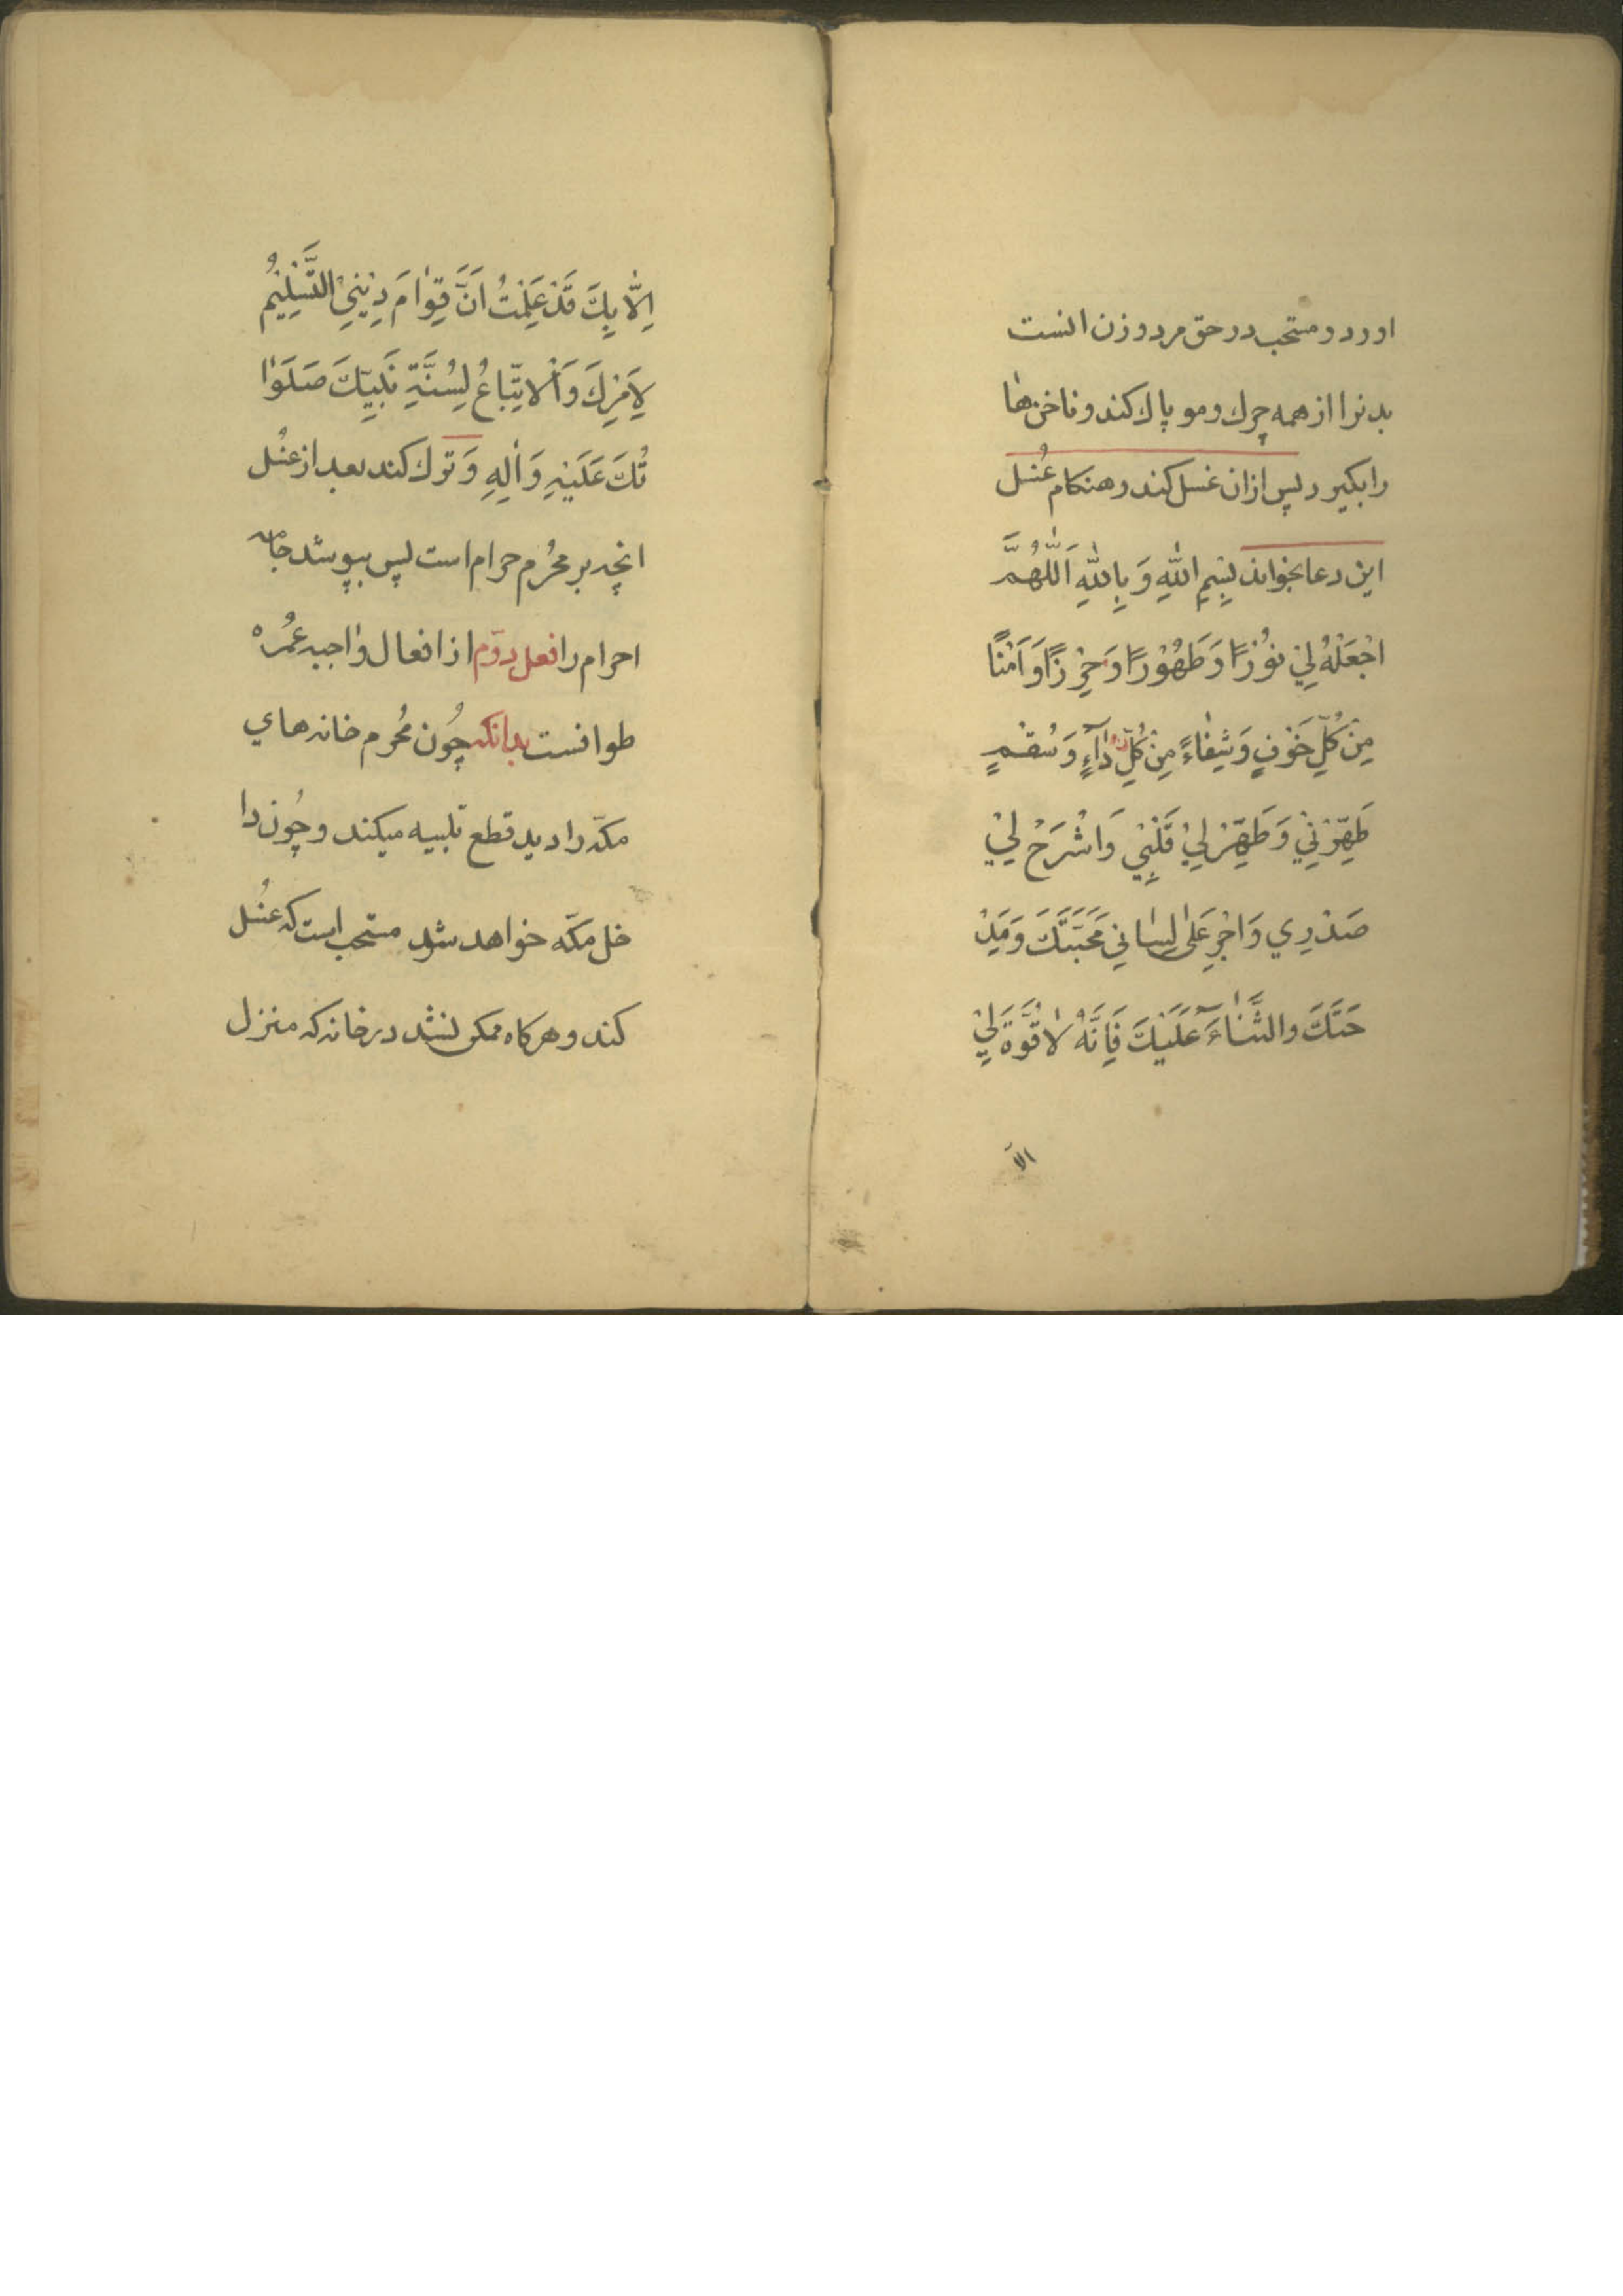 اورد و مستحب در حق مرد و زن انست
بدنرا از همه چرك و مو پاك كند و ناخن‌ها
را بكيرد پس ازان غسل كند و هنكام غُسل
اين دعا بخواند بِسْمِ اللّٰهِ وَ بِاللّٰهِ اَللّٰهُمَّ
اجْعَلْهُ لِيْ نُوْرًا وَ طَهُوْرًا وَ حِرْزًا وَ اَمْنًا
مِنْ كُلِّ خَوْفٍ وَ شِفٰاءً مِنْ كُلِّ دٰآءٍ وَ سُقْمٍ
طَهِّرْنِيْ وَ طَهِّرْ لِيْ قَلْبِيْ وَ اشْرَحْ لِيْ
صَدْرِي وَ اجْرِ عَلىٰ لِسٰانِي مَحَبَّتَكَ وَ مَدِْ
حَتَكَ والثَّنٰاءَ عَلَيْكَ فَاِنَّهُ لاٰ قُوَّةَ لِيْ
الاّ
اِلّٰا بِكَ قَدْ عَلِمْتُ اَنَّ قِوٰامَ دِيْنِيْ التَّسْلِيْمُ
لِاَمْرِكَ وَ الْاتِّبٰاعُ لِسُنَّةِ نَبِيِّكَ صَلَوٰا
تُكَ عَلَيْهِ وَ اٰلِهِ وَ ترك كند بعد از غُسل
انچه بر محُرم حرام است پس بپوشد جامه
احرام را فعل دوّم از افعال واجبه عُمره
طوافست بدانكه چُون مُحرم خانه‌هاي
مكّه را ديد قطع تلبيه ميكند و چُون دا
خل مكّه خواهد شد مستحب است كه غُسل
كند و هركاه ممكن نشد در خانه كه منزل